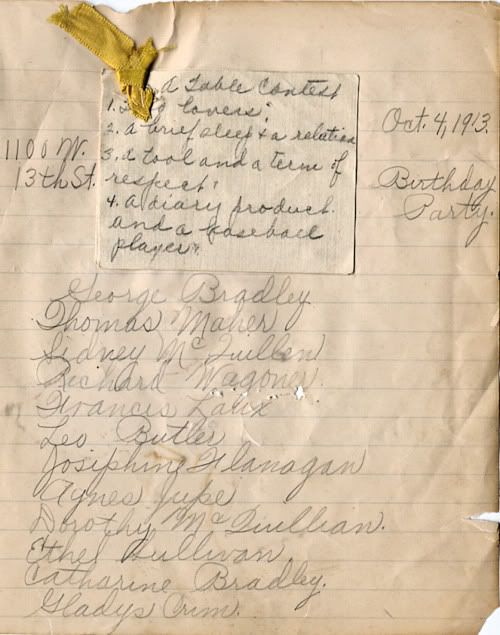 A Table Contest
1. lovers:
2. a brief sleep & a relation
3. a tool and a term of
respect:
4. a diary product.
and a baseball
player:
Oct. 4, 1913.
Birthday
Party.
1100 W.
13th St.
George Bradley
Thomas Maher
Sidney McQuillen
Richard Wagoner.
Francis Laux
Leo Butler
Josiphine Flanagan
Agnes Jupe
Dorothy McQuillian.
Ethel Sullivan,
Catharine Bradley.
Gladys Crim.